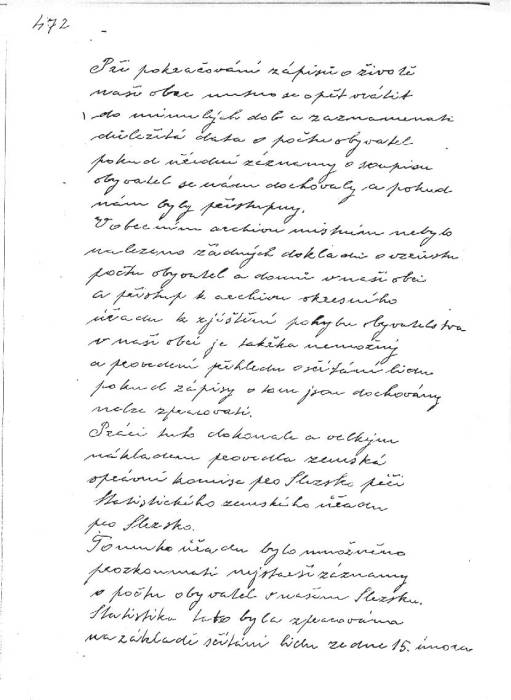 472
Při pokračování zápisů o životě
naší obec nutno se opět vrátit
do minulých dob a zaznamenati
důležitá data o počtu obyvatel
pokud úřední záznamy o soupisu
obyvatel se nám dochovaly a pokud
nám byly přístupny.
V obecním archivu místním nebylo
nalezeno žádných dokladů o vzrůstu
počtu obyvatel a domů v naší obci
a přístup k archivu okresního
úřadu k zjištění pohybu obyvatelstva
v naší obci je takřka nemožný
a provedení přehledu o sčítání lidu
pokud zápisy o tom jsou dochovány
nelze zpracovati.
Práci tuto dokonale a velkým
nákladem provedla zemská
správní komise pro Slezsko péčí
Statistického zemského úřadu
pro Slezsko.
Tomuto úřadu bylo umožněno
prozkoumati nejstarší záznamy
o počtu obyvatel v našem Slezsku.
Statistika tato byla zpracována
na základě sčítání lidu ze dne 15. února